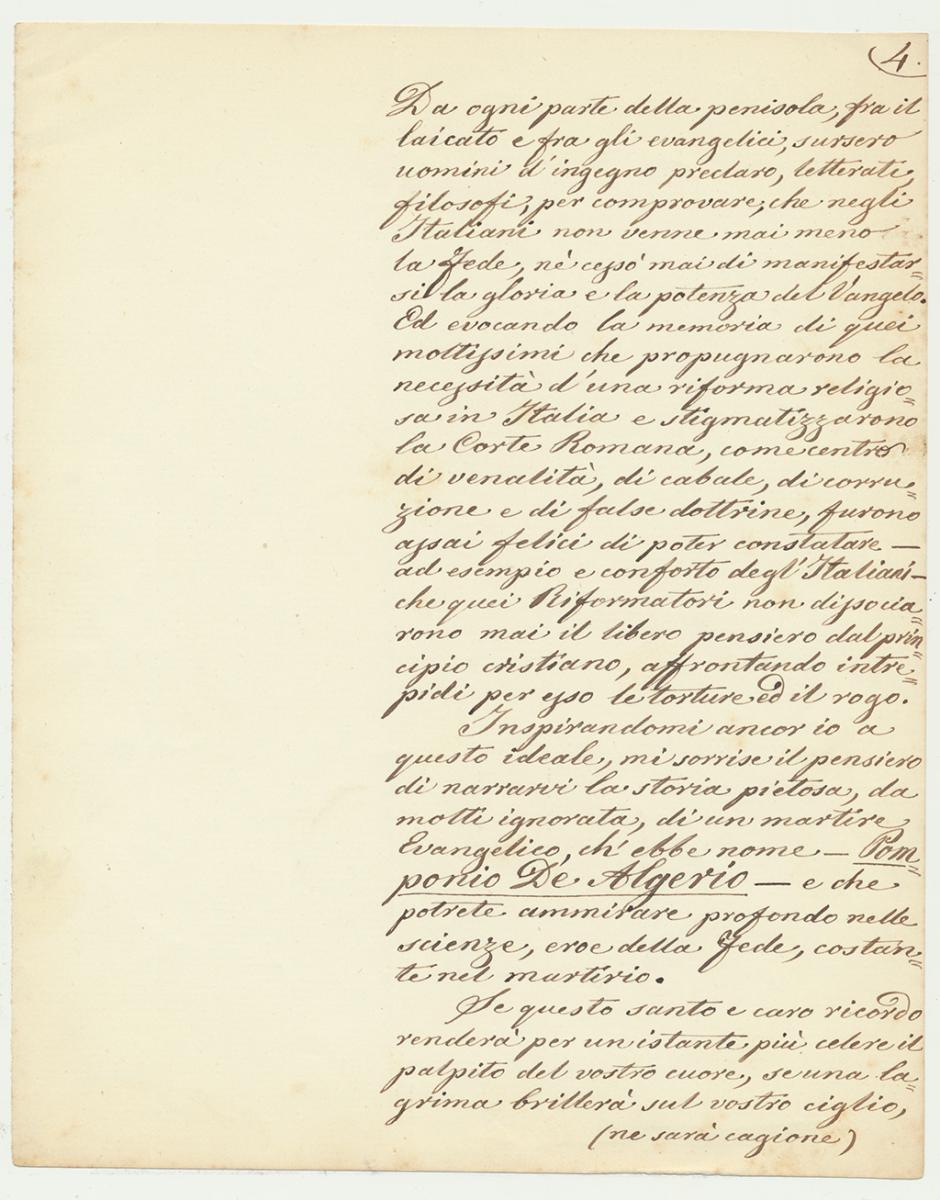 4.
Da ogni parte della penisola, fra il
laicato e fra gli evangelici, sursero
uomini d'ingegno preclaro, letterati,
filosofi, per comprovare, che negli
Italiani non venne mai meno
la Fede, nè cessò mai di manifestar=
si la gloria e la potenza del Vangelo.
Ed evocando la memoria di quei
moltissimi che propugnarono la
necessità d'una riforma religio=
sa in Italia e stigmatizzarono
la Corte Romana, come centro
di venalità, di cabale, di corru=
zione e di false dottrine, furono
assai felici di poter constatare —
ad esempio e conforto degl'Italiani —
che quei Riformatori non dissocia=
rono mai il libero pensiero dal prin=
cipio cristiano, affrontando intre=
pidi per esso le torture ed il rogo.
Inspirandomi ancor io a
questo ideale, mi sorrise il pensiero
di narrarvi la storia pietosa, da
molti ignorata, di un martire
Evangelico, ch'ebbe nome — Pom=
ponio De Algerio — e che
potrete ammirare profondo nelle
scienze, eroe della Fede, costan=
te nel martirio.
Se questo santo e caro ricordo
renderà per un istante più celere il
palpito del vostro cuore, se una la=
grima brillerà sul vostro ciglio,
(ne sarà cagione)